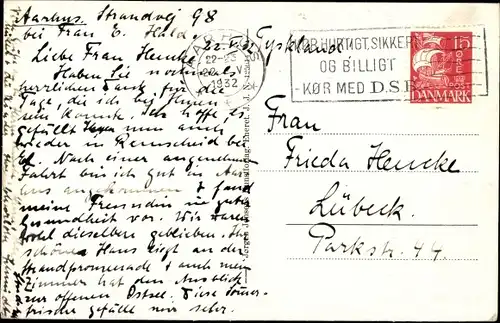 Aarhus. Strandvej 98
bei Frau E. Hald.
22. V. 32
Liebe Frau Hencke!
Haben Sie nochmals
herzlichen Dank für die
Tage, die ich bei Ihnen
sein konnte. Ich hoffe, es
gefällt Ihnen nun auch
wieder in Remscheid bei
Nach einer angenehmen
Fahrt bin ich gut in Aar-
hus angekommen & fand
meine Freundin in guter
Gesundheit vor. Wir waren
wohl dieselben geblieben. Ihr
schönes Haus liegt an der
Strandpromenade & auch mein
Zimmer hat den Ausblick
zur offenen Ostsee. Diese Sommer-
frische gefällt mir sehr.
Tyskland
22-23
1932
HURTIGT, SIKKERT
OG BILLIGT
- KØR MED D.S.B.
15
POST
DANMARK
Frau
Frieda Hencke
Lübeck.
Parkstr. 44